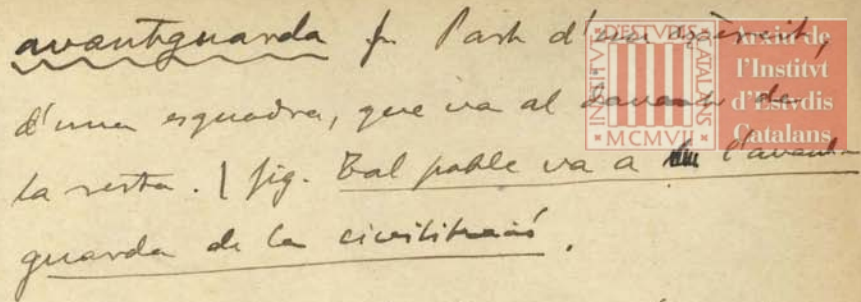 avantguarda f. Part d'una exèrcit,
d'una esquadra, que va al davant de
la resta. | fig. Tal poble va a l'avant-
guarda de la civilització.
INSTITVT D'ESTVDIS CATALANS
MCMVII
Arxiu de
l'Institvt
d'Estvdis
Catalans